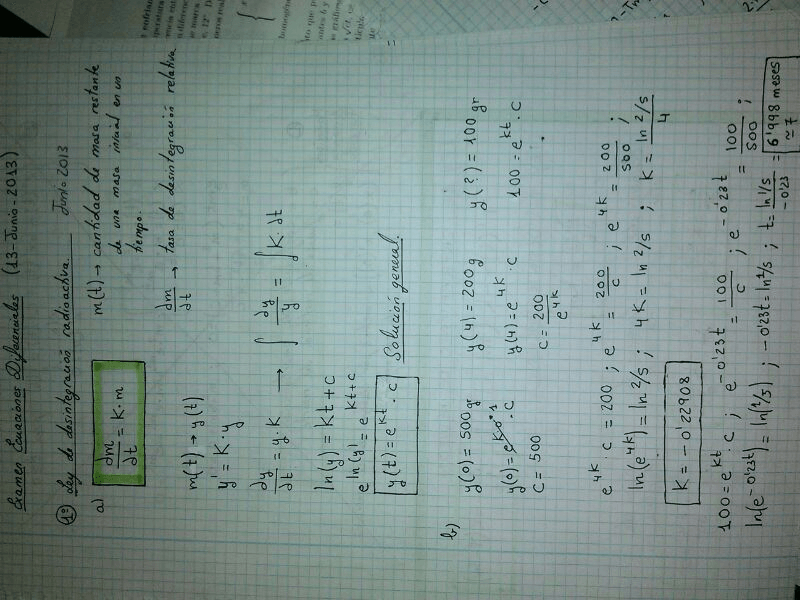 Examen Ecuaciones Diferenciales (13-Junio-2013)
1º Ley de desintegración radioactiva. Junio 2013
a) dm/dt = K·m
m(t) → cantidad de masa restante
de una masa inicial en un
tiempo.
dm/dt → tasa de desintegración relativa.
m(t) → y(t)
y' = K·y
∂y/∂t = y·K → ∫ ∂y/y = ∫ K·∂t
ln(y) = kt + c
e^ln(y) = e^kt+c
y(t) = e^kt · c Solución general.
b) y(0) = 500 gr y(4) = 200 g y(?) = 100 gr
y(0) = e^k·0 1 · c y(4) = e^4K · c 100 = e^kt · c
c = 500 c = 200/e^4k
e^4k · c = 200 ; e^4k = 200/c ; e^4k = 200/500 ;
ln(e^4k) = ln 2/5 ; 4K = ln 2/5 ; K = ln 2/5 / 4
K = -0'22908
100 = e^kt · c ; e^-0'23t = 100/c ; e^-0'23t = 100/500 ;
ln(e^-0'23t) = ln(1/5) ; -0'23t = ln 1/5 ; t = ln 1/5 / -0'23 = 6'998 meses
≃ 7